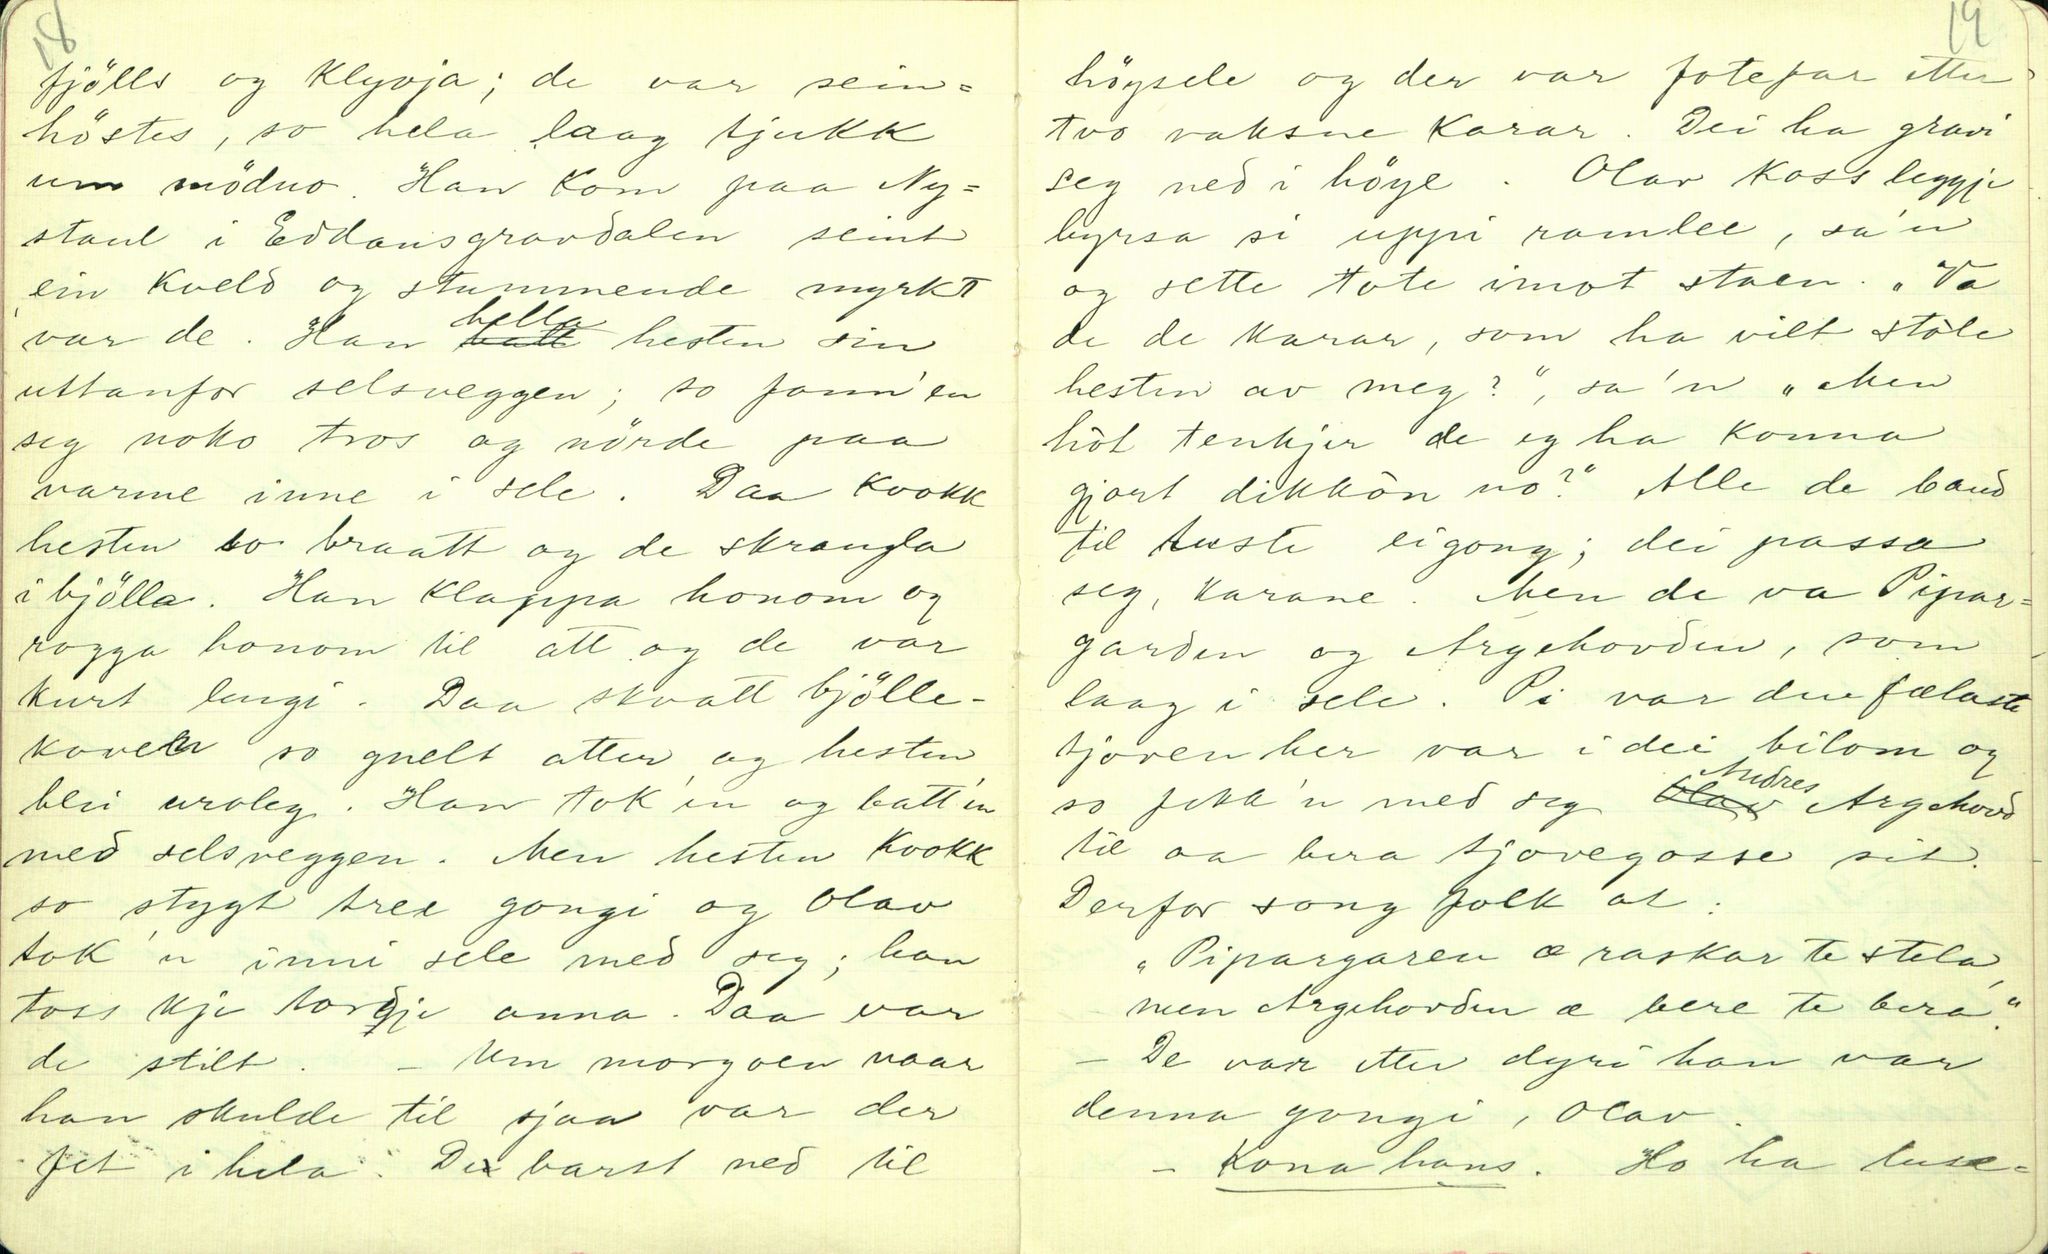 18
fjölls og Klyvja; de var sein=
höstes, so hela laag tjukk
um mödno. Han kom paa Ny=
staul i Eddansgravdalen seint
ein kveld og stummende myrkt
var de. Han hella hesten sin
uttanfor selsveggen; so fann'en
seg noko tros og nörde paa
varme inne i sele. Daa kvokk
hesten so braatt og de skrangla
i bjölla. Han klappa honom og
rogga honom til att og de var
kurt lengi. Daa skvatt bjölle-
koven so gnelt atter og hesten
blei uroleg. Han tok'en og batt'en
med selsveggen. Men hesten kvokk
so stygt tree gongi og Olav
tok'n inni sele med seg; han
toss kje tordje anna. Daa var
de stilt. – Um morgoen naar
han skulde til sjaa var der
fet i hela. De barst ned til
19
högsele og der var fotefar etter
tvo vaksne karar. Dei ha gravi
seg ned i höye. Olav Koss leggje
byrsa si uppi ramlee, sa'n
og sette tote imot staen. "Va
de de karar, som ha vilt stöle
hesten av meg?", sa'n "Men
höt tenkjer de eg ha konna
gjort dikkön no?" Alle de baud
til huste eigong; dei passa
seg, karane. Men de va Pipar=
garden og Argehovden, som
laag i sele. Pi var den fælaste
tjoven her var i dei bilom og
so fekk'n med seg Andres Argehovd
til aa bera tjovegosse sit.
Derfor song folk at:
"Pipargaren æ raskar te stela,
men Argehovden æ bere te bera."
– De var etter dyri han var
denna gongi, Olav.
– Kona hans. Ho ha luse=